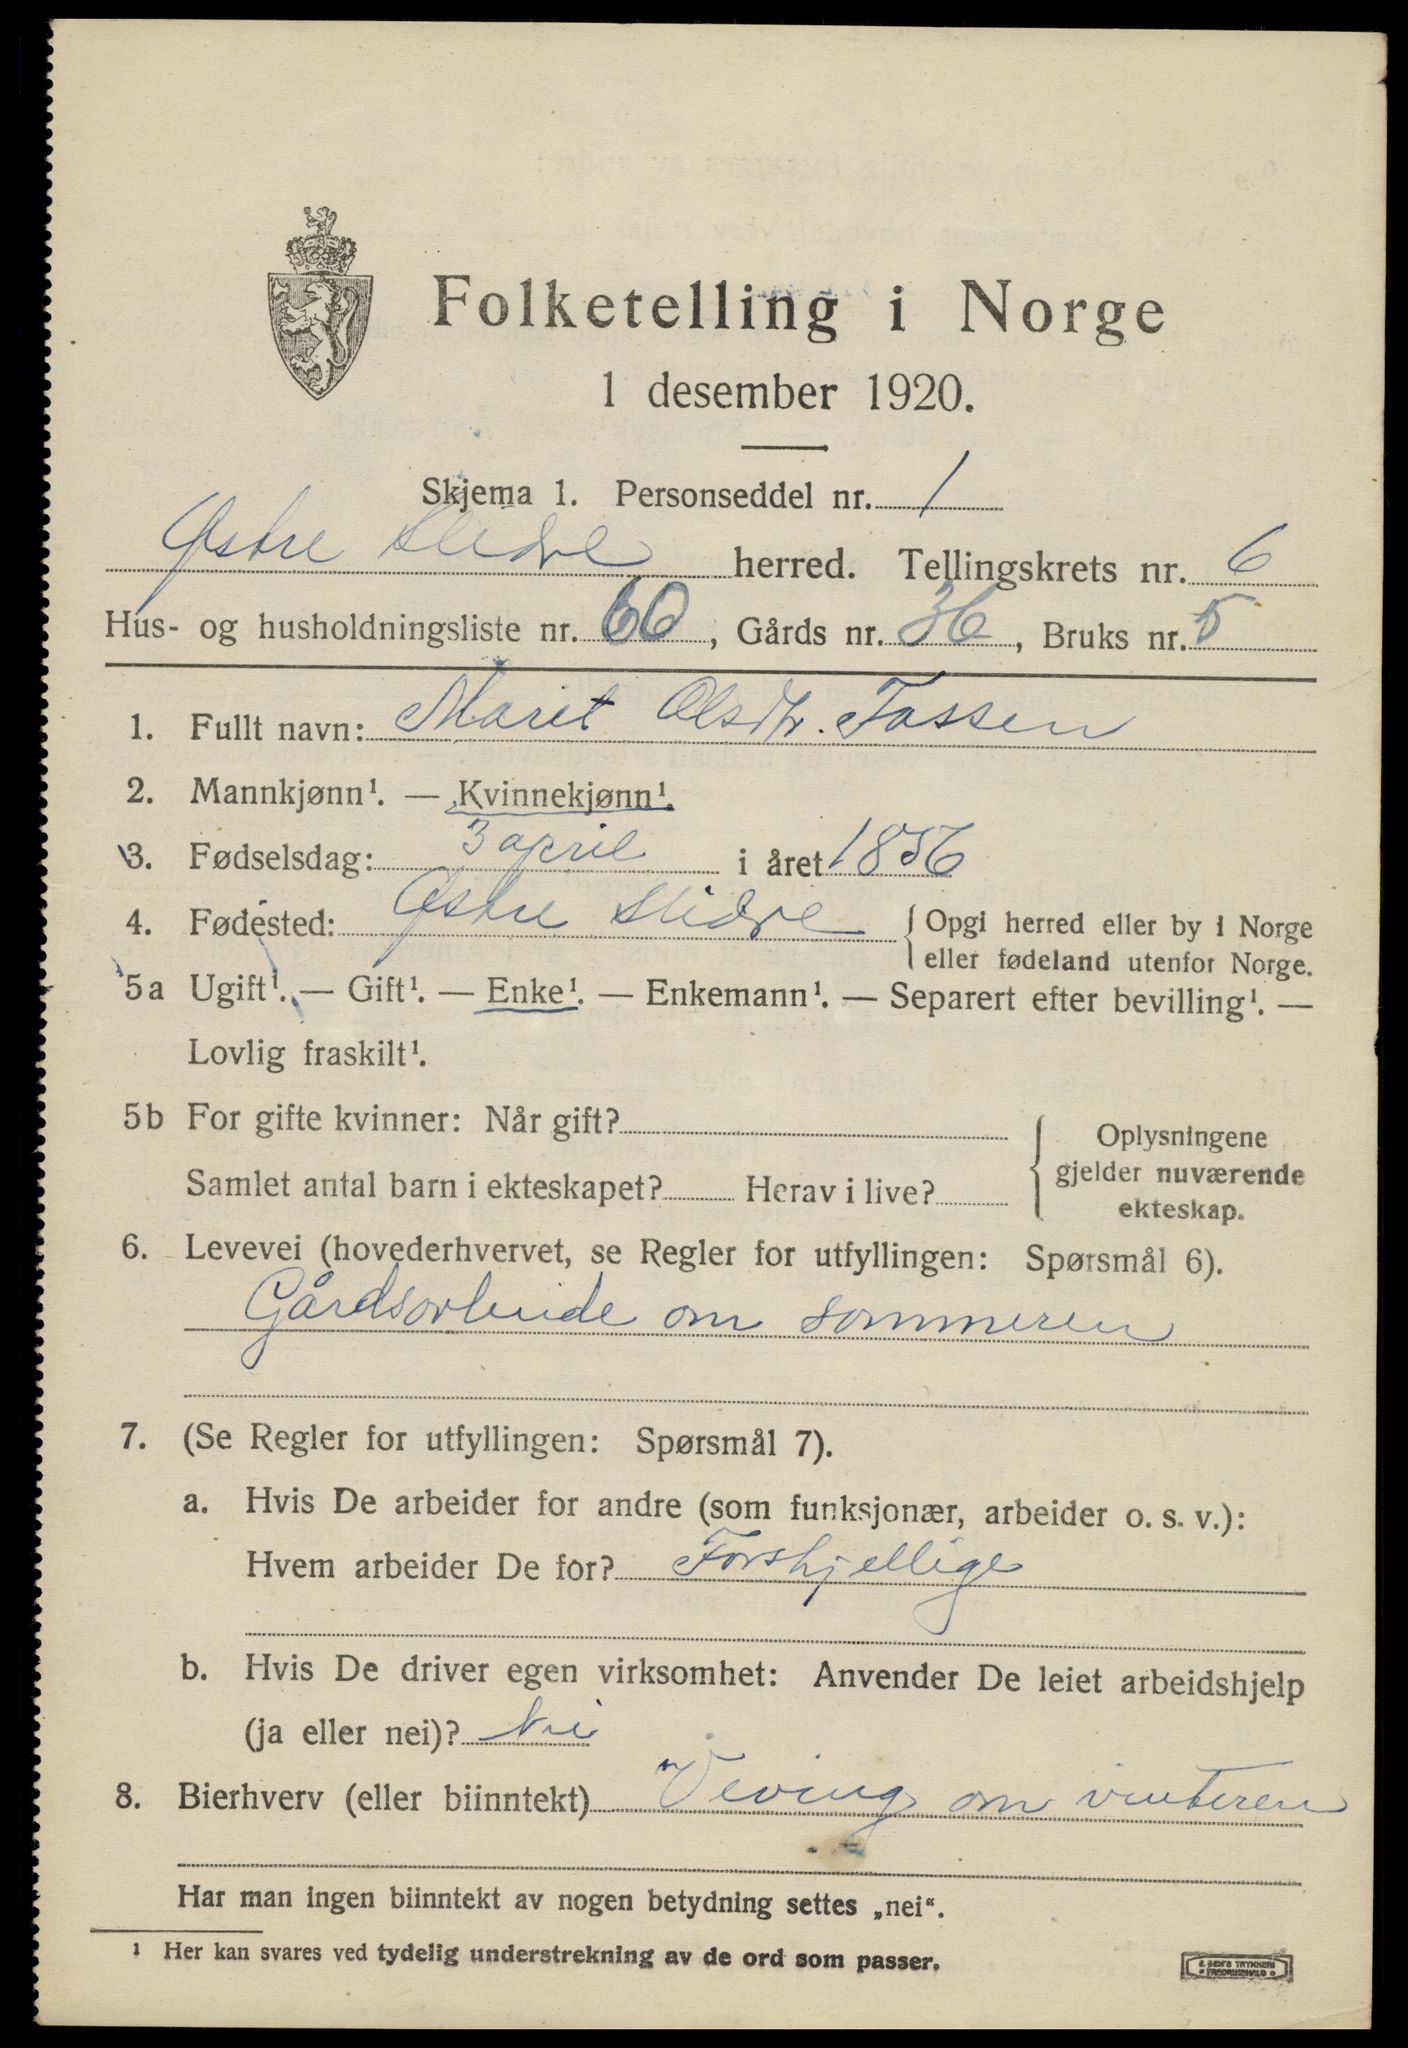 Folketelling i Norge
1 desember 1920.
Skjema 1. Personseddel nr. 1
Østre Slidre herred. Tellingskrets nr. 6
Hus- og husholdningsliste nr. 60, Gårds nr. 36, Bruks nr. 5
1. Fullt navn: Marit Olsdtr. Fossen
2. Mannkjønn¹. — Kvinnekjønn¹.
3. Fødselsdag: 3 april i året 1856
4. Fødested: Østre Slidre { Opgi herred eller by i Norge
eller fødeland utenfor Norge.
5a Ugift¹. — Gift¹. — Enke¹. — Enkemann¹. — Separert efter bevilling¹. —
Lovlig fraskilt¹.
5b For gifte kvinner: Når gift?
Samlet antal barn i ekteskapet? Herav i live?
Oplysningene
gjelder nuværende
ekteskap.
6. Levevei (hovederhvervet, se Regler for utfyllingen: Spørsmål 6).
Gårdsarbeide om sommeren
7. (Se Regler for utfyllingen: Spørsmål 7).
a. Hvis De arbeider for andre (som funksjonær, arbeider o. s. v.):
Hvem arbeider De for? Forskjellige
b. Hvis De driver egen virksomhet: Anvender De leiet arbeidshjelp
(ja eller nei)? Nei
8. Bierhverv (eller biinntekt) Veving om vinteren
Har man ingen biinntekt av nogen betydning settes „nei“.
¹ Her kan svares ved tydelig understrekning av de ord som passer.